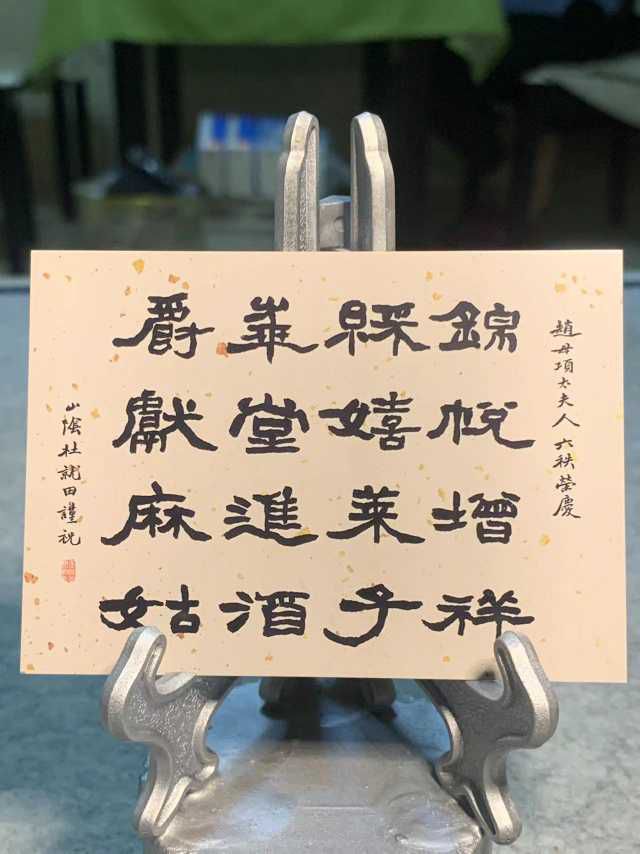 趙母項太夫人六秩榮慶
錦帨增祥
綵嬉萊子
華堂進酒
爵獻麻姑
山陰杜就田謹祝